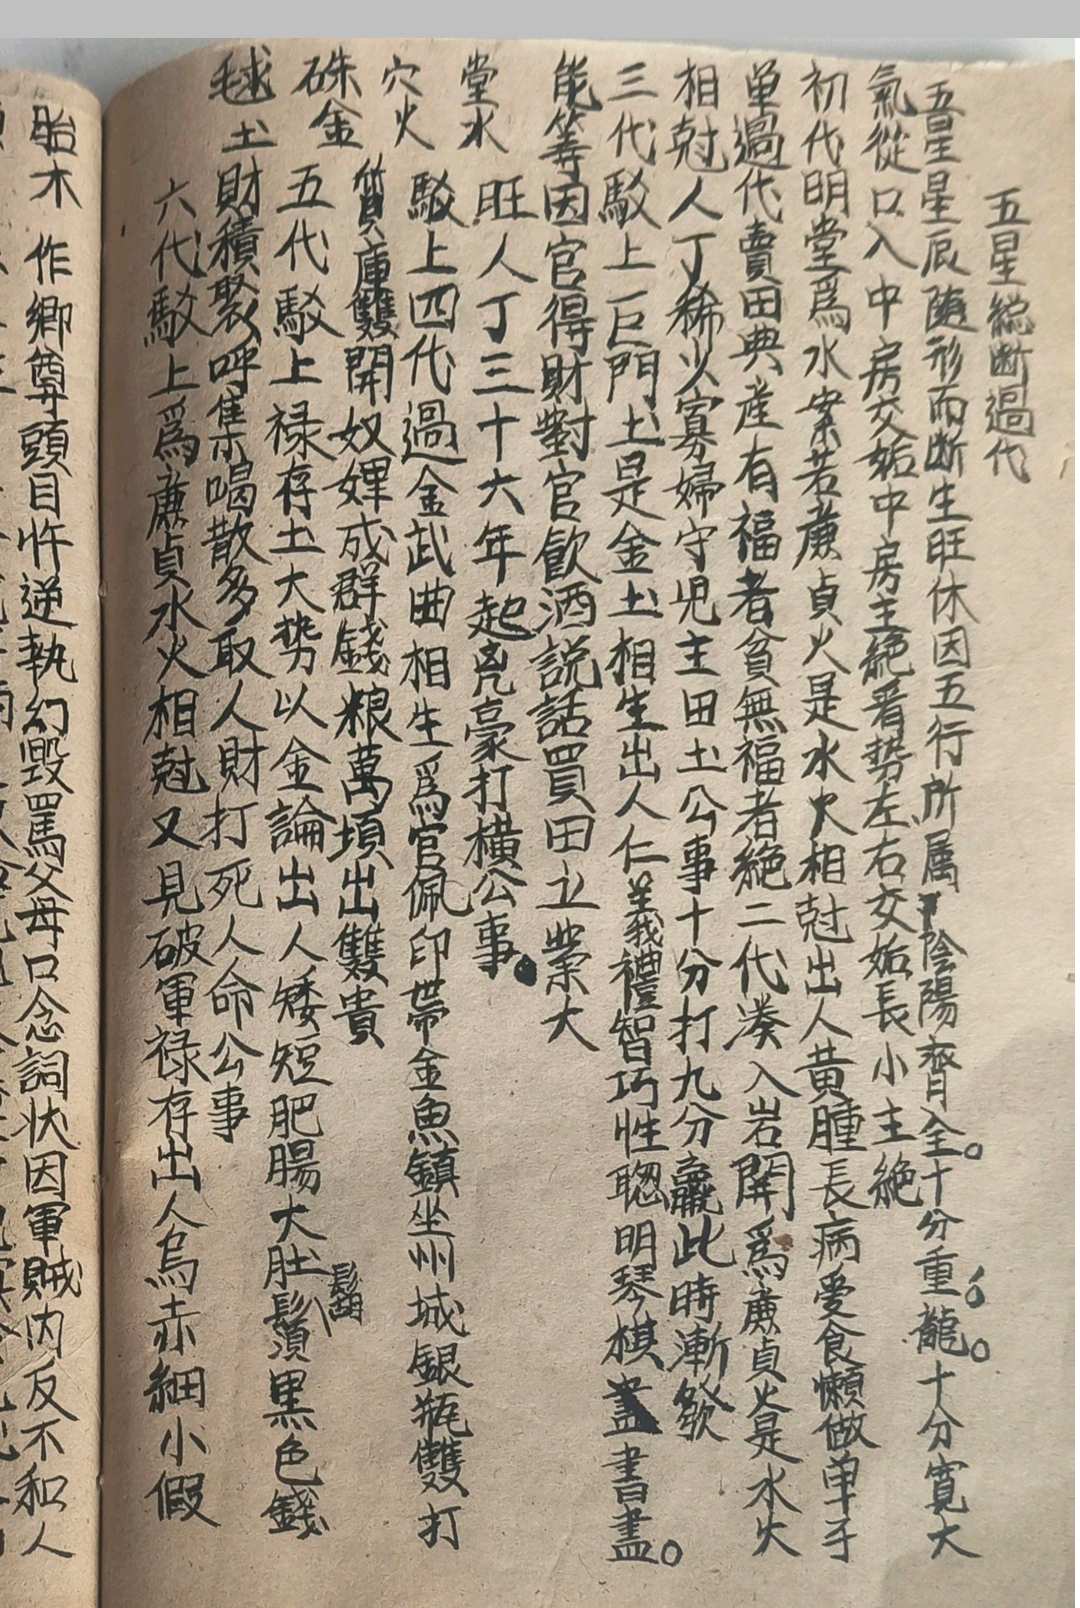 五星総断過代
五星星辰隨形而断生旺休因五行所属陰陽齊全。十分重龍。十分寛大
氣從口入中房交姤中房主絶看勢左右交姤長小主絶
初代明堂爲水案若廉貞火是水火相尅出人黄腫長病爱食懶做单手
单過代賣田典産有福者貧無福者絶二代湊入岩開爲廉貞火是水火
相尅人丁稀少寡婦守児主田土公事十分打九分贏此時漸發
三代駁上巨門土是金土相生出人仁義禮智巧性聰明琴棋書盡。
能等因官得財對官飲酒説話買田立業大
堂水 旺人丁三十六年起凴豪打横公事。
穴火 駁上四代過金武曲相生爲官佩印帶金魚鎮坐州城銀瓶雙打
質庫雙開奴婢成群錢粮萬項出雙貴
砞金 五代駁上禄存土大势以金論出人矮短肥腸大肚鬍鬚黒色錢
毬土 財積聚呼集喝散多取人財打死人命公事
六代駁上爲廉貞水火相尅又見破軍禄存出人烏赤細小假
胎木 作鄉尊頭目忤逆執幻毀罵父母口念詞状因軍賊内反不和人